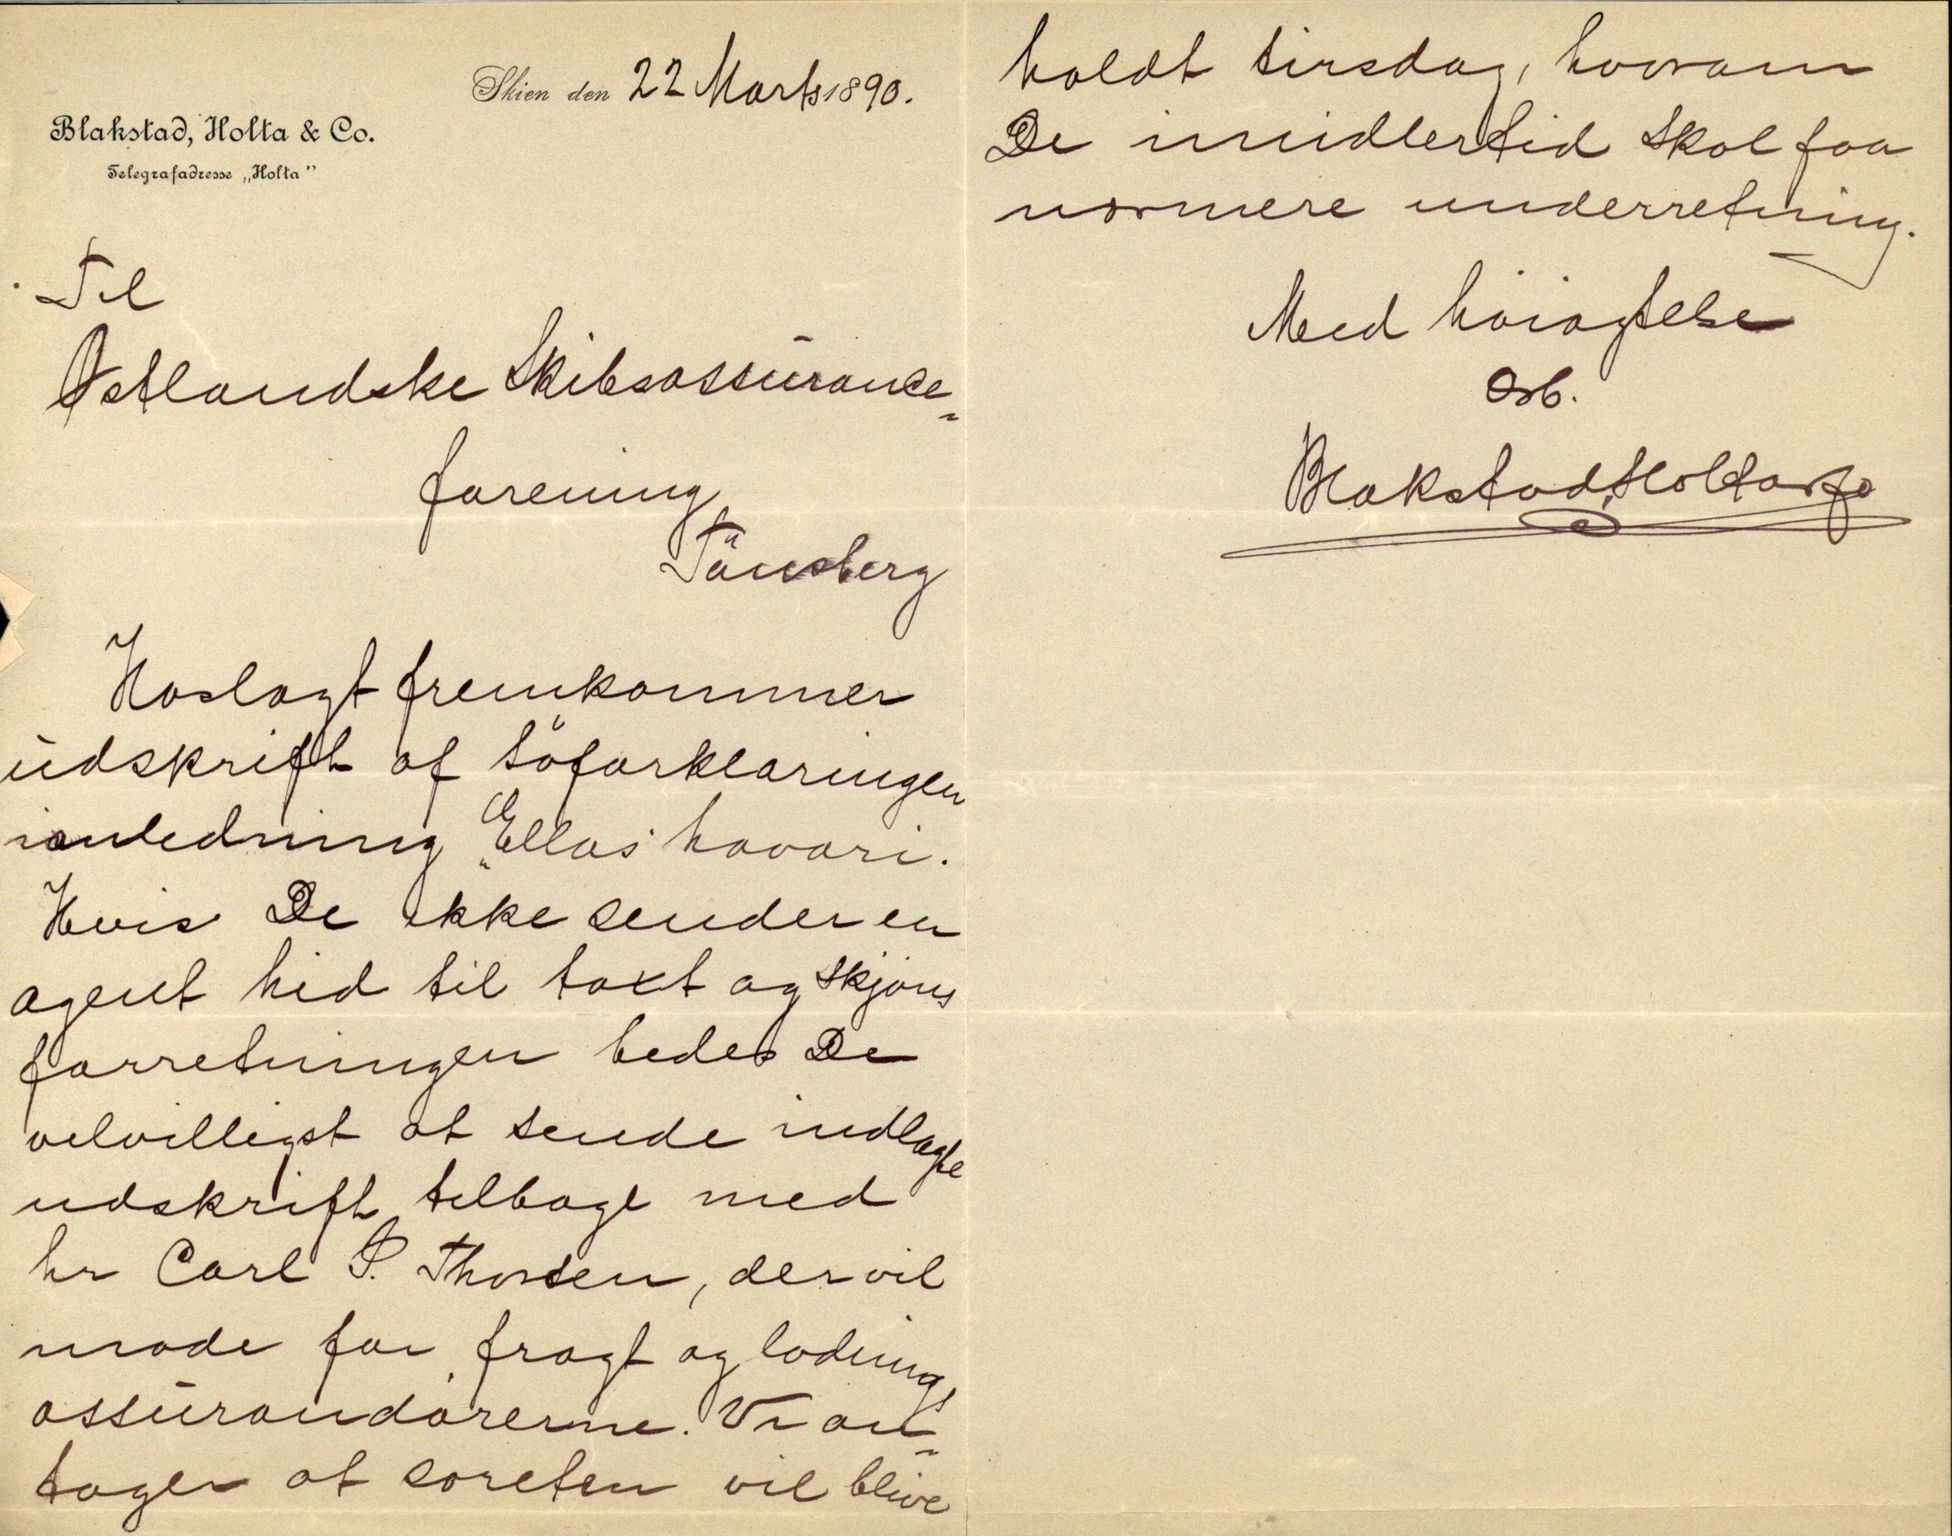 Skien den 22 Marts 1890.
Blakstad, Holta & Co.
Telegrafadresse „Holta”
Til
Østlandske Skibsassurance-
forening
Tönsberg
Hoslagt fremkommer
udskrift af söforklaringen
i anledning „Ellas" havari.
Hvis De ikke sender en
agent hid til taxt og skjöns
forretningen bedes De
velvilligst at sende indlagte
udskrift tilbage med
hr Carl P. Thorsen, der vil
möde for fragt og ladnings
assurandörerne. Vi an-
tager at søreten vil blive
holdt tirsdag, hvorom
De imidlertid skal faa
nærmere underretning.
Med höiagtelse
Arb.
Blakstad, Holta & Co